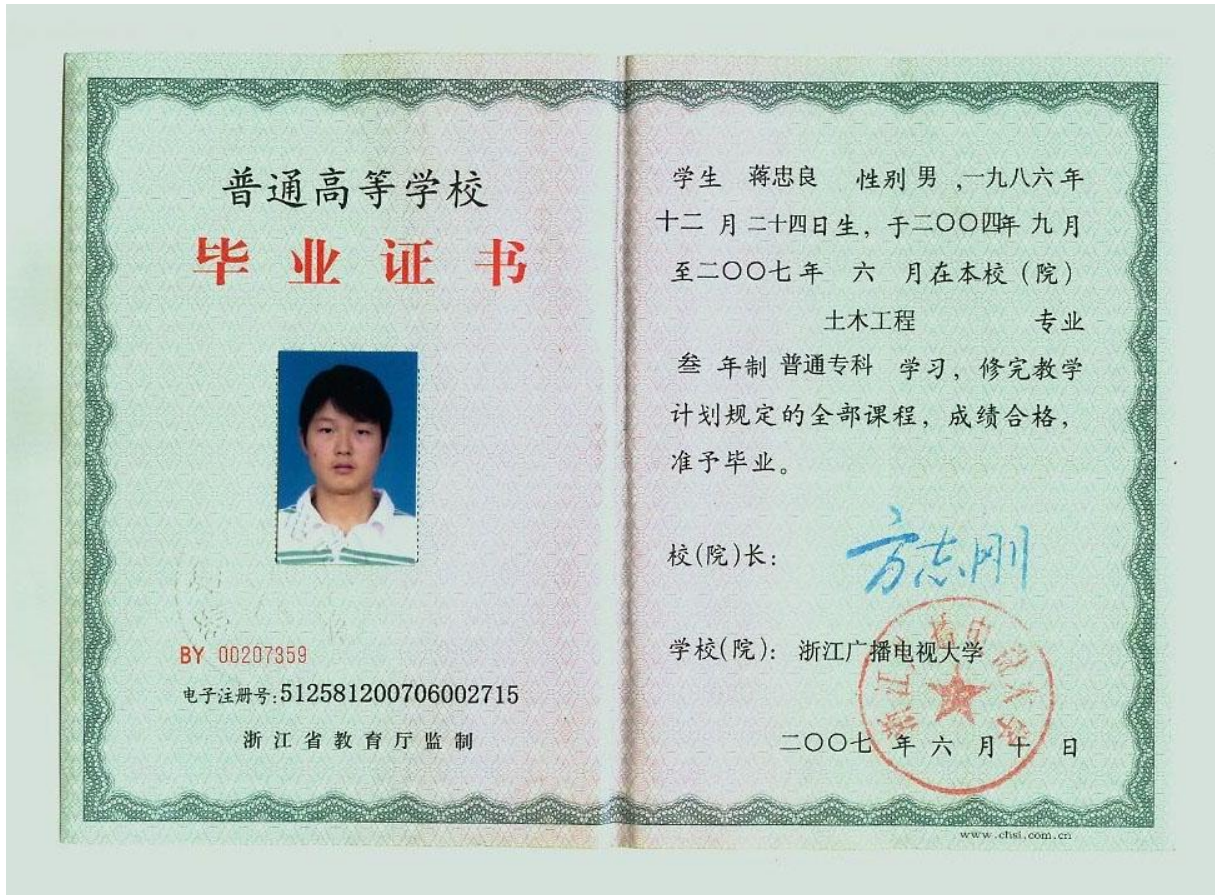 普通高等学校
毕业证书
BY 00207359
电子注册号:512581200706002715
浙江省教育厅监制
学生 蒋忠良 性别 男 ,一九八六年
十二 月 二十四日生, 于二〇〇四年 九 月
至二〇〇七年 六 月在本校(院)
土木工程 专业
叁 年制 普通专科 学习, 修完教学
计划规定的全部课程, 成绩合格,
准予毕业。
校(院)长: 方志刚
学校(院): 浙江广播电视大学
浙江广播电视大学
二〇〇七 年 六 月 十 日
www.chsi.com.cn